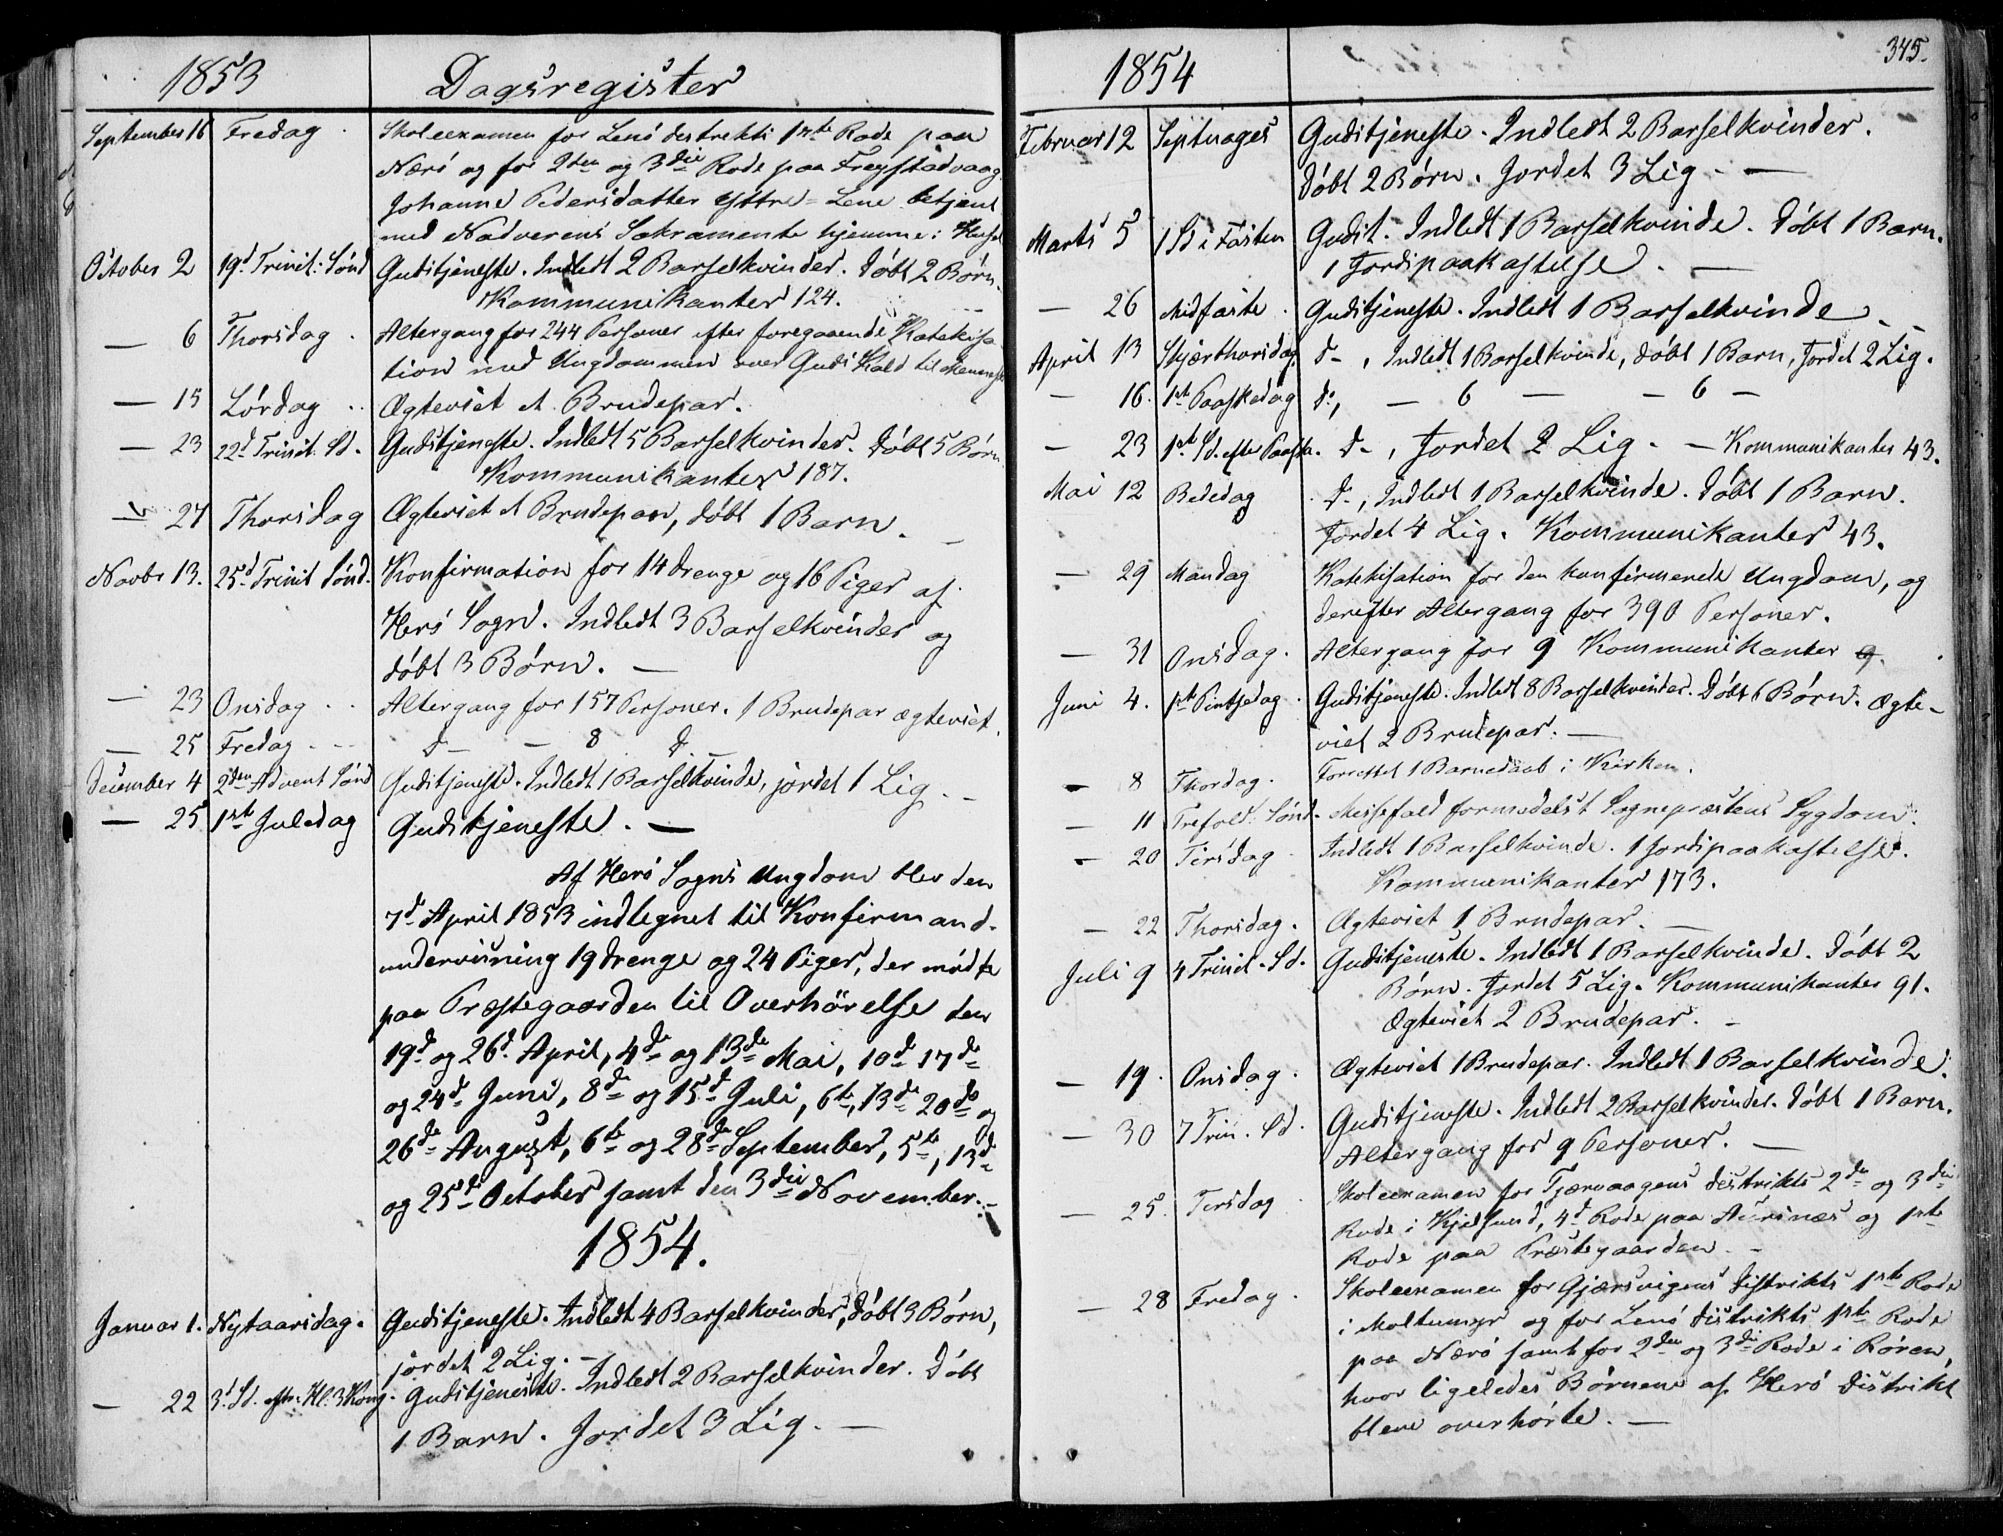 1853 Dagsregister
September 16 Fredag. Skoleexamen for Lenö destrikts 1ste Rode paa
Nærö og for 2den og 3die Rode paa Frøystadvaag.
Johanne Pedersdatter Yttre=Lene betjent
med Nadverens Sakramente hjemme i Huset
October 2 19d Trinit: Sønd Gudstjeneste. Indledt 2 Barselkvinder. Døbt 2 Børn.
Kommunikanter 124.
— 6 Thorsdag. Altergang for 244 Personer efter foregaaende Katekisa
tion med Ungdommen over Guds Kald til Mennesk
— 15 Lørdag.. Ægteviet et Brudepar.
— 23 22d Trinit. Sd. Gudstjeneste. Indledt 5 Barselkvinder. Døbt 5 Børn
Kommunikanter 187.
— 27 Thorsdag Ægteviet et Brudepar, døbt 1 Barn.
Novbr 13. 25d Trinit Sønd. Konfirmation for 14 Drenge og 16 Piger af
Herö Sogn. Indledt 3 Barselkvinder og
døbt 3 Børn. —
— 23 Onsdag.. Altergang for 157 Personer. 1 Brudepar ægteviet.
— 25 Fredag.. d— — 8 d. —
December 4 2den Advent Sønd Gudstjeneste. Indledt 1 Barselkvinde, jordet 1 Lig. —
— 25 1ste Juledag Gudstjeneste. —
Af Herö Sogns Ungdom blev den
7d April 1853 indtegnet til Konfirmand-
underviisning 19 Drenge og 24 Piger, der mødte
paa Præstegaarden til Overhörelse den
19d og 26d April, 4de og 13de Mai, 10de 17de
og 24d Juni, 8de og 15d Juli, 6te, 13de 20de og
26de August, 6te og 28de September, 5te, 13de
og 25de October samt den 3die November. —
1854.
Januar 1. Nytaarsdag. Gudstjeneste. Indledt 4 Barselkvinder, døbt 3 Børn,
jordet 2 Lig. —
— 22 3d Sd. eftr. Hl. 3 Kong. Gudstjeneste. Indledt 2 Barselkvinder. Døbt
1 Barn. Jordet 3 Lig. —
1854 345.
Februar 12 Septuages Gudstjeneste. Indledt 2 Barselkvinder.
Døbt 2 Børn. Jordet 3 Lig. —
Marts 5 1 Sd i Fasten Gudst. Indledt 1 Barselkvinde. Døbt 1 Barn.
1 Jordspaakastelse. —
— 26 Midfaste. Gudstjeneste. Indledt 1 Barselkvinde. —
April 13 Skjærthorsdag. d—, Indledt 1 Barselkvinde, døbt 1 Barn, Jordet 2 Lig.
— 16. 1ste Paaskedag d., — 6 — — 6 —
— 23 1ste Sd. efter Paaske. d—, Jordet 2 Lig. — Kommunikanter 43.
Mai 12 Bededag. d—, Indledt 1 Barselkvinde. Døbt 1 Barn.
Jordet 4 Lig. Kommunikanter 43.
— 29 Mandag Katekisation for den konfirmerede Ungdom, og
derefter Altergang for 390 Personer.
— 31 Onsdag. Altergang for 9 Kommunikanter
Juni 4. 1ste Pintsedag. Gudstjeneste. Indledt 8 Barselkvinder. Døbt 6 Børn. Ægte-
viet 2 Brudepar. —
— 8 Thordag. Forrettet 1 Barnedaab i Kirken.
— 11 Trefold: Sønd. Messefald formedelst Sognepræstens Sygdom.
— 20 Tirsdag. Indledt 1 Barselkvinde. 1 Jordspaakastelse.
Kommunikanter 173.
— 22 Thorsdag. Ægteviet 1 Brudepar. —
Juli 9 4 Trinit. Sd. Gudstjeneste. Indledt 1 Barselkvinde. Døbt 2
Børn. Jordet 5 Lig. Kommunikanter 91.
Ægteviet 2 Brudepar. —
— 19. Onsdag. Ægteviet 1 Brudepar. Indledt 1 Barselkvinde.
— 30 7 Trin. Sd. Gudstjeneste. Indledt 2 Barselkvinder. Døbt 1 Barn.
Altergang for 9 Personer. —
— 25. Tirsdag. Skoleexamen for Tjærvaagens Distrikts 2den og 3die
Rode i Kjelsund, 4d Rode paa Aurinæs og 1ste
Rode paa Præstegaarden. —
— 28 Fredag. Skoleexamen for Gjærsvigens Distrikts 1ste Rode
i Moltumyr og for Lenö Distrikts 1ste Rode
paa Nærö samt for 2den og 3die Rode i Røren,
hvor ligeledes Børnene af Herö Distrikt
bleve overhørte. —